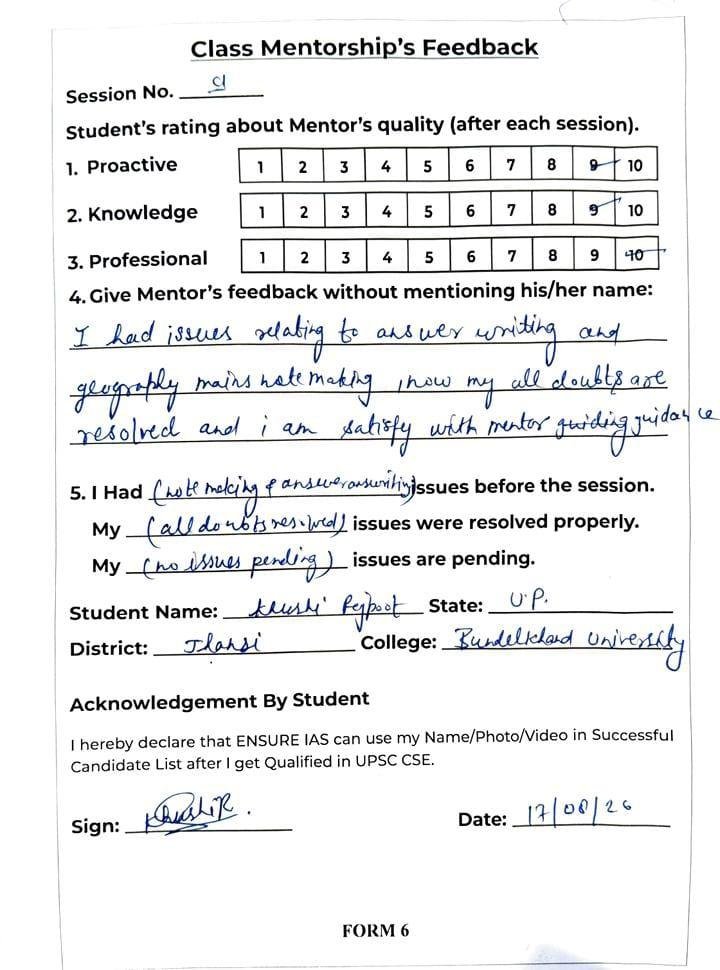 Class Mentorship's Feedback
Session No. 9
Student's rating about Mentor's quality (after each session).
1. Proactive 1 2 3 4 5 6 7 8 9 10
2. Knowledge 1 2 3 4 5 6 7 8 9 10
3. Professional 1 2 3 4 5 6 7 8 9 10
4. Give Mentor's feedback without mentioning his/her name:
I had issues relating to answer writing and
geography mains note making , now my all doubts are
resolved and i am satisfy with mentor guiding guidance
5. I Had (note making & answer answriting) issues before the session.
My (all doubts resolved) issues were resolved properly.
My (no issues pending) issues are pending.
Student Name: Khushi Rajpoot State: U.P.
District: Jhansi College: Bundelkhand University
Acknowledgement By Student
I hereby declare that ENSURE IAS can use my Name/Photo/Video in Successful
Candidate List after I get Qualified in UPSC CSE.
Sign: KhushiR. Date: 17/08/26
FORM 6